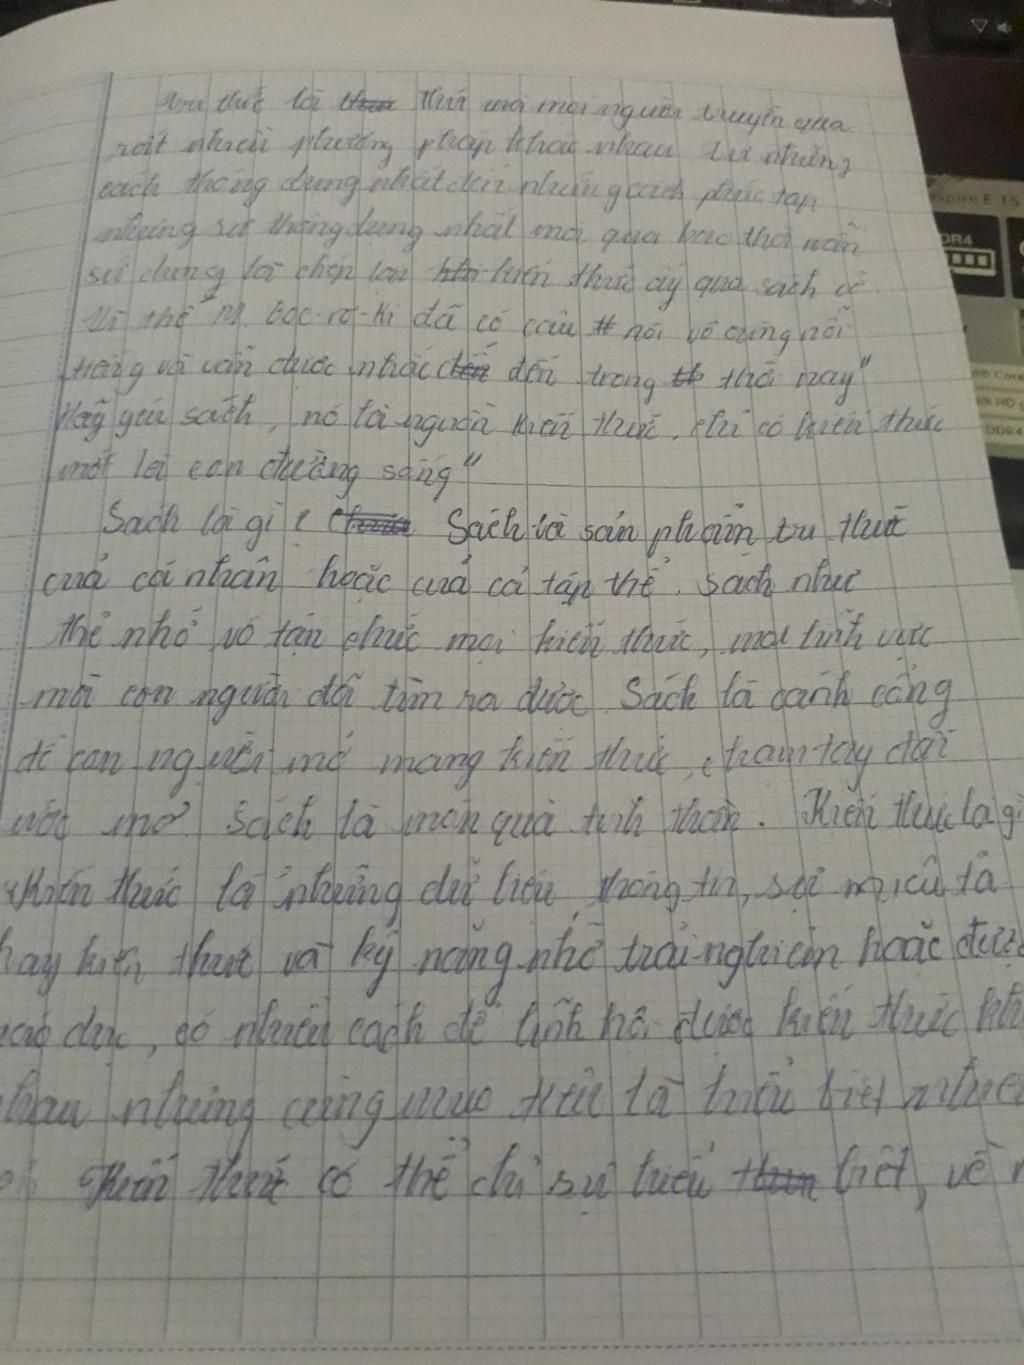 tri thức là thứ mà mọi người truyền qua
rất nhiều phương pháp khác nhau từ những
cách thông dụng nhất đến những cách phức tạp
những sự thông dụng nhất mà qua bao thời vẫn
sử dụng là chép lại kiến thức ấy qua sách vở.
Vì thế M. Goc-rơ-Ki đã có câu nói vô cùng nổi
tiếng và vẫn được nhắc đến trong thời nay"
Hãy yêu sách, nó là nguồn kiến thức, chỉ có kiến thức
mới là con đường sống"
Sách là gì? Sách là sản phẩm tri thức
của cá nhân hoặc của cả tập thể. sách như
thẻ nhớ vô tận chức mọi kiến thức, mọi lĩnh vực
mà con người đã tìm ra được Sách là cánh cổng
để con người mở mang kiến thức, chạm tay đến
ước mơ. Sách là món quà tinh thần. Kiến thức là gì
Kiến thức là những dữ liệu, thông tin, sự miêu tả
hay kiến thức và kỹ năng nhờ trải nghiệm hoặc được
giáo dục, có nhiều cách để lĩnh hội được kiến thức
nhau nhưng cùng mục tiêu là hiểu biết
Kiến thức có thể chỉ sự hiểu biết, về
Aspire E 15
DDR4
Core
HD
DDR4